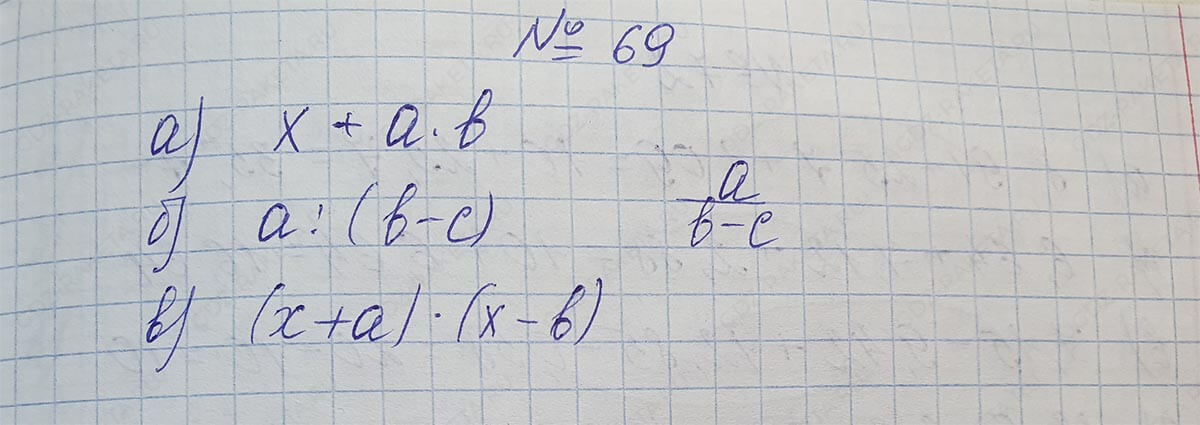 № 69
а) x + a · b
б) a : (b – c) a/(b – c)
в) (x + a) · (x – b)